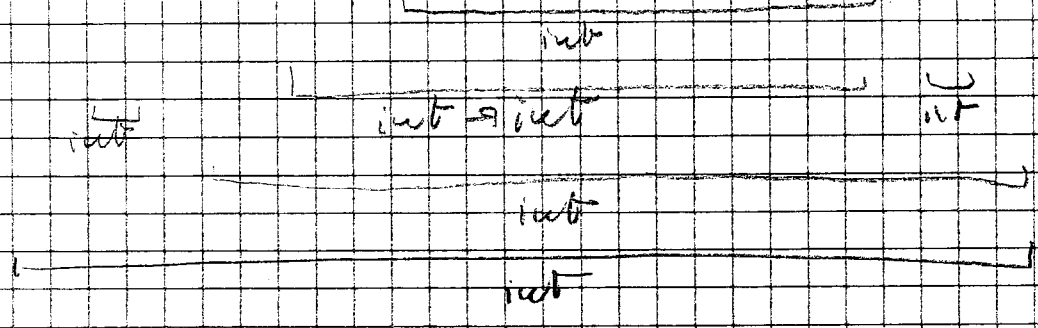 int
int int → int int
int
int